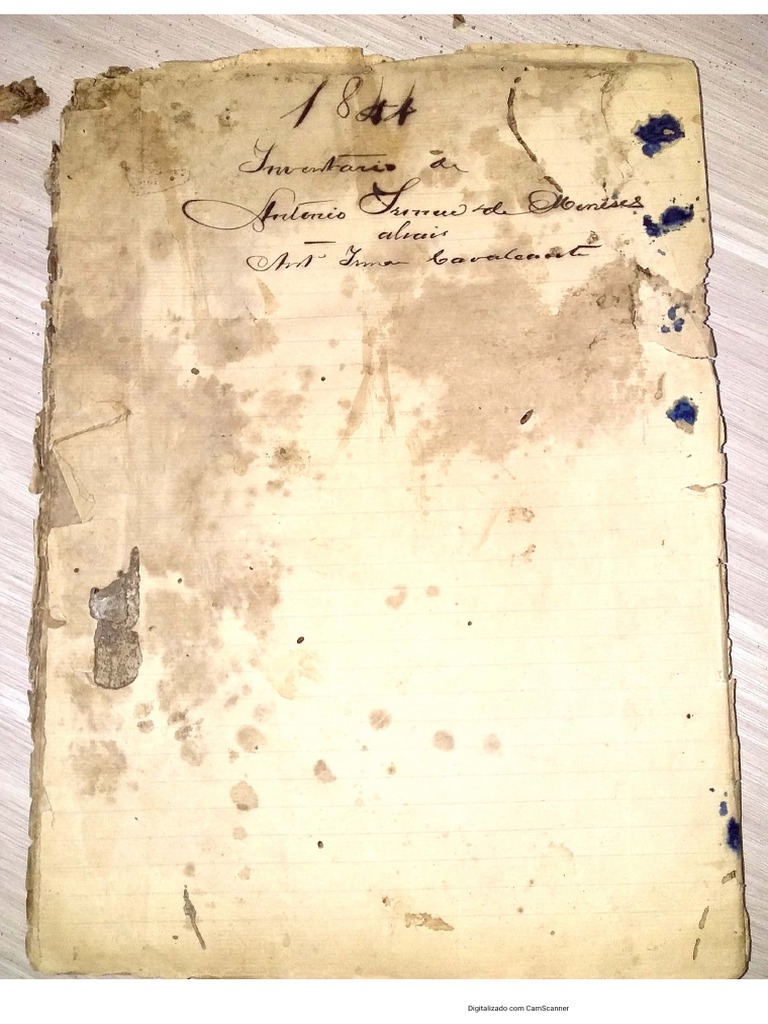 1844
Inventario de
Antonio de Menezes
aliais
Antº Cavalcante
Digitalizado com CamScanner